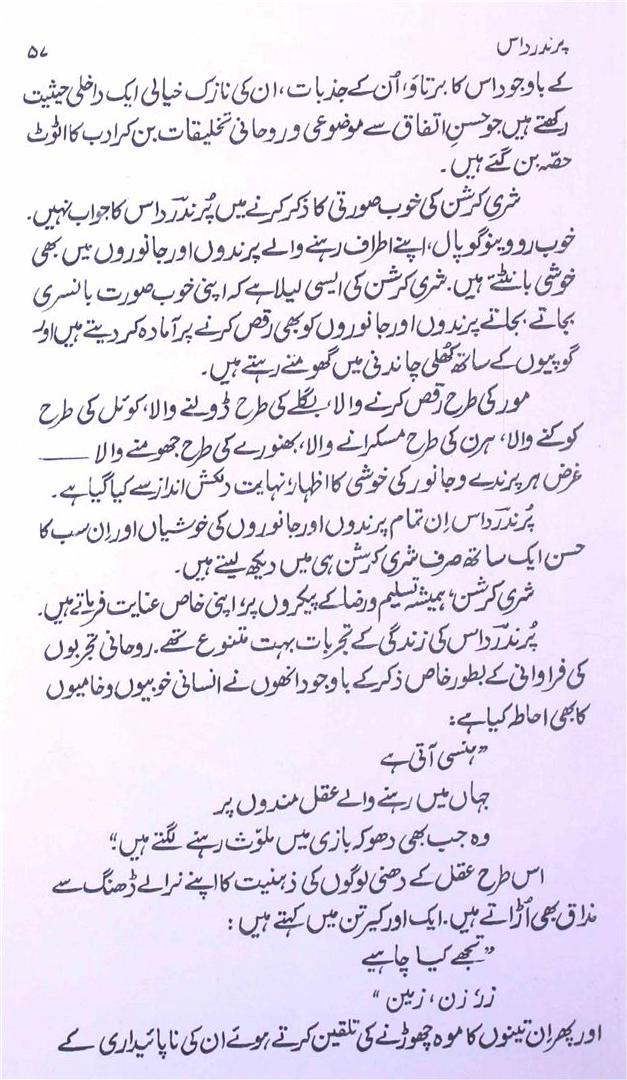 پرندر داس ۵۷
کے باوجود اس کا برتاؤ، اُن کے جذبات، ان کی نازک خیالی ایک داخلی حیثیت
رکھتے ہیں جو حسنِ اتفاق سے موضوعی و روحانی تخلیقات بن کر ادب کا اٹوٹ
حصّہ بن گئے ہیں۔
شری کرشن کی خوب صورتی کا ذکر کرنے میں پُرندر داس کا جواب نہیں۔
خوب رو وینو گوپال، اپنے اطراف رہنے والے پرندوں اور جانوروں میں بھی
خوشی بانٹتے ہیں۔ شری کرشن کی ایسی لیلا ہے کہ اپنی خوب صورت بانسری
بجاتے بجاتے پرندوں اور جانوروں کو بھی رقص کرنے پر آمادہ کر دیتے ہیں اور
گوپیوں کے ساتھ کھُلی چاندنی میں گھومتے رہتے ہیں۔
مور کی طرح رقص کرنے والا، بگلے کی طرح ڈولنے والا، کوئل کی طرح
کوکنے والا، ہرن کی طرح مسکرانے والا، بھنورے کی طرح جھومنے والا ____
غرض ہر پرندے و جانور کی خوشی کا اظہار، نہایت دلکش انداز سے کیا گیا ہے۔
پُرندر داس اِن تمام پرندوں اور جانوروں کی خوشیاں اور اِن سب کا
حسن ایک ساتھ صرف شری کرشن ہی میں دیکھ لیتے ہیں۔
شری کرشن، ہمیشہ تسلیم و رضا کے پیکروں پر، اپنی خاص عنایت فرماتے ہیں۔
پُرندر داس کی زندگی کے تجربات بہت متنوع تھے۔ روحانی تجربوں
کی فراوانی کے بطور خاص ذکر کے باوجود انھوں نے انسانی خوبیوں و خامیوں
کا بھی احاطہ کیا ہے:
”ہنسی آتی ہے
جہاں میں رہنے والے عقل مندوں پر
وہ جب بھی دھوکہ بازی میں ملوّث رہنے لگتے ہیں“
اس طرح عقل کے دھنی لوگوں کی ذہنیت کا اپنے نرالے ڈھنگ سے
مذاق بھی اُڑاتے ہیں۔ ایک اور کیرتن میں کہتے ہیں:
”تجھے کیا چاہیے
زر، زن، زمین“
اور پھر اِن تینوں کا موہ چھوڑنے کی تلقین کرتے ہوئے ان کی ناپائیداری کے